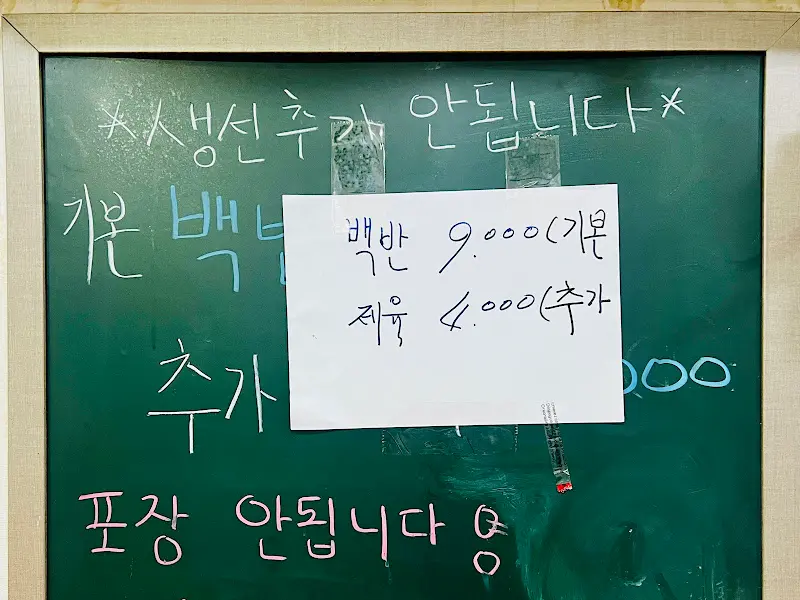 *생선추가 안됩니다*
기본 백
백반 9.000(기본
제육 4.000(추가
추가 000
포장 안됩니다 용